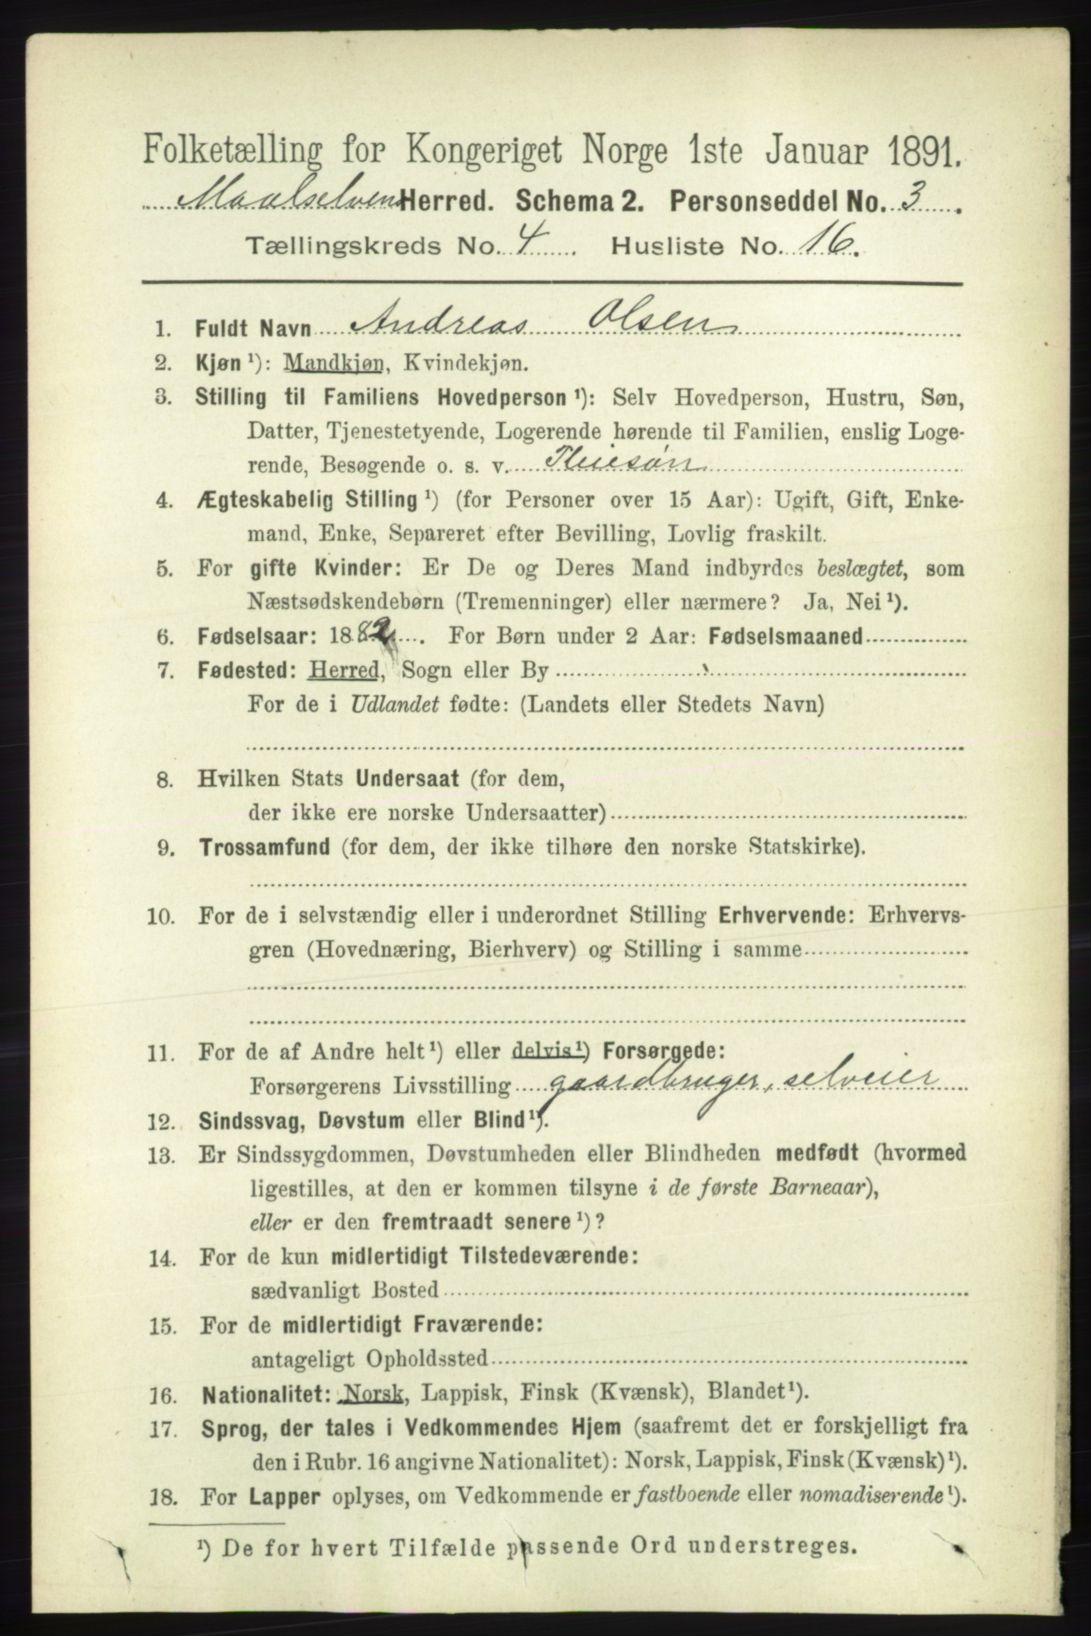 Folketælling for Kongeriget Norge 1ste Januar 1891.
Maalselvens Herred. Schema 2. Personseddel No. 3.
Tællingskreds No. 4. Husliste No. 16.
1. Fuldt Navn Andreas Olsen
2. Kjøn ¹): Mandkjøn, Kvindekjøn.
3. Stilling til Familiens Hovedperson ¹): Selv Hovedperson, Hustru, Søn,
Datter, Tjenestetyende, Logerende hørende til Familien, enslig Loge-
rende, Besøgende o. s. v. Pleiesøn
4. Ægteskabelig Stilling ¹) (for Personer over 15 Aar): Ugift, Gift, Enke-
mand, Enke, Separeret efter Bevilling, Lovlig fraskilt.
5. For gifte Kvinder: Er De og Deres Mand indbyrdes beslægtet, som
Næstsødskendebørn (Tremenninger) eller nærmere? Ja, Nei ¹).
6. Fødselsaar: 1882. For Børn under 2 Aar: Fødselsmaaned
7. Fødested: Herred, Sogn eller By
For de i Udlandet fødte: (Landets eller Stedets Navn)
8. Hvilken Stats Undersaat (for dem,
der ikke ere norske Undersaatter)
9. Trossamfund (for dem, der ikke tilhøre den norske Statskirke).
10. For de i selvstændig eller i underordnet Stilling Erhvervende: Erhvervs-
gren (Hovednæring, Bierhverv) og Stilling i samme
11. For de af Andre helt ¹) eller delvis ¹) Forsørgede:
Forsørgerens Livsstilling gaardbruger, selveier
12. Sindssvag, Døvstum eller Blind ¹).
13. Er Sindssygdommen, Døvstumheden eller Blindheden medfødt (hvormed
ligestilles, at den er kommen tilsyne i de første Barneaar),
eller er den fremtraadt senere ¹)?
14. For de kun midlertidigt Tilstedeværende:
sædvanligt Bosted
15. For de midlertidigt Fraværende:
antageligt Opholdssted
16. Nationalitet: Norsk, Lappisk, Finsk (Kvænsk), Blandet ¹).
17. Sprog, der tales i Vedkommendes Hjem (saafremt det er forskjelligt fra
den i Rubr. 16 angivne Nationalitet): Norsk, Lappisk, Finsk (Kvænsk) ¹).
18. For Lapper oplyses, om Vedkommende er fastboende eller nomadiserende ¹).
¹) De for hvert Tilfælde passende Ord understreges.